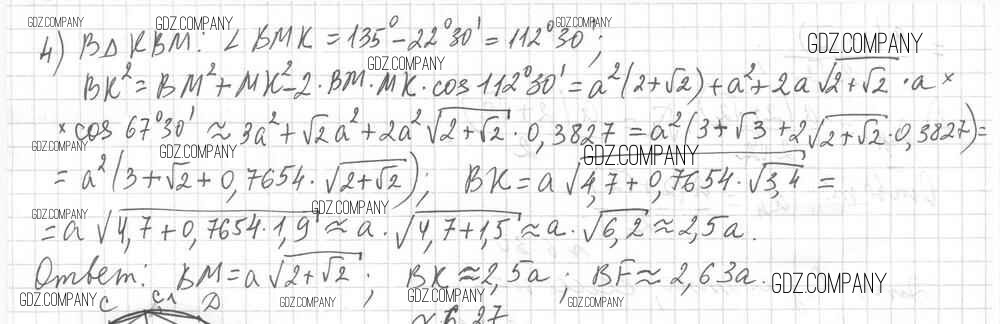 GDZ.COMPANY GDZ.COMPANY GDZ.COMPANY
4) В Δ KBM: ∠ BMK = 135° − 22°30' = 112°30';
GDZ.COMPANY GDZ.COMPANY
BK² = BM² + MK² − 2 · BM · MK · cos 112°30' = a²(2+√2) + a² + 2a √(2+√2) · a ×
× cos 67°30' ≈ 3a² + √2 a² + 2a² √(2+√2) · 0,3827 = a²(3+√3 + 2√(2+√2) · 0,3827) =
GDZ.COMPANY GDZ.COMPANY GDZ.COMPANY
= a²(3+√2 + 0,7654 · √(2+√2)); BK = a √(4,7 + 0,7654 · √3,4) =
GDZ.COMPANY GDZ.COMPANY
= a √(4,7 + 0,7654 · 1,9) ≈ a · √(4,7+1,5) ≈ a · √6,2 ≈ 2,5a.
Ответ: BM = a √(2+√2); BK ≈ 2,5a; BF ≈ 2,63a.
GDZ.COMPANY GDZ.COMPANY GDZ.COMPANY GDZ.COMPANY GDZ.COMPANY
C C1 D